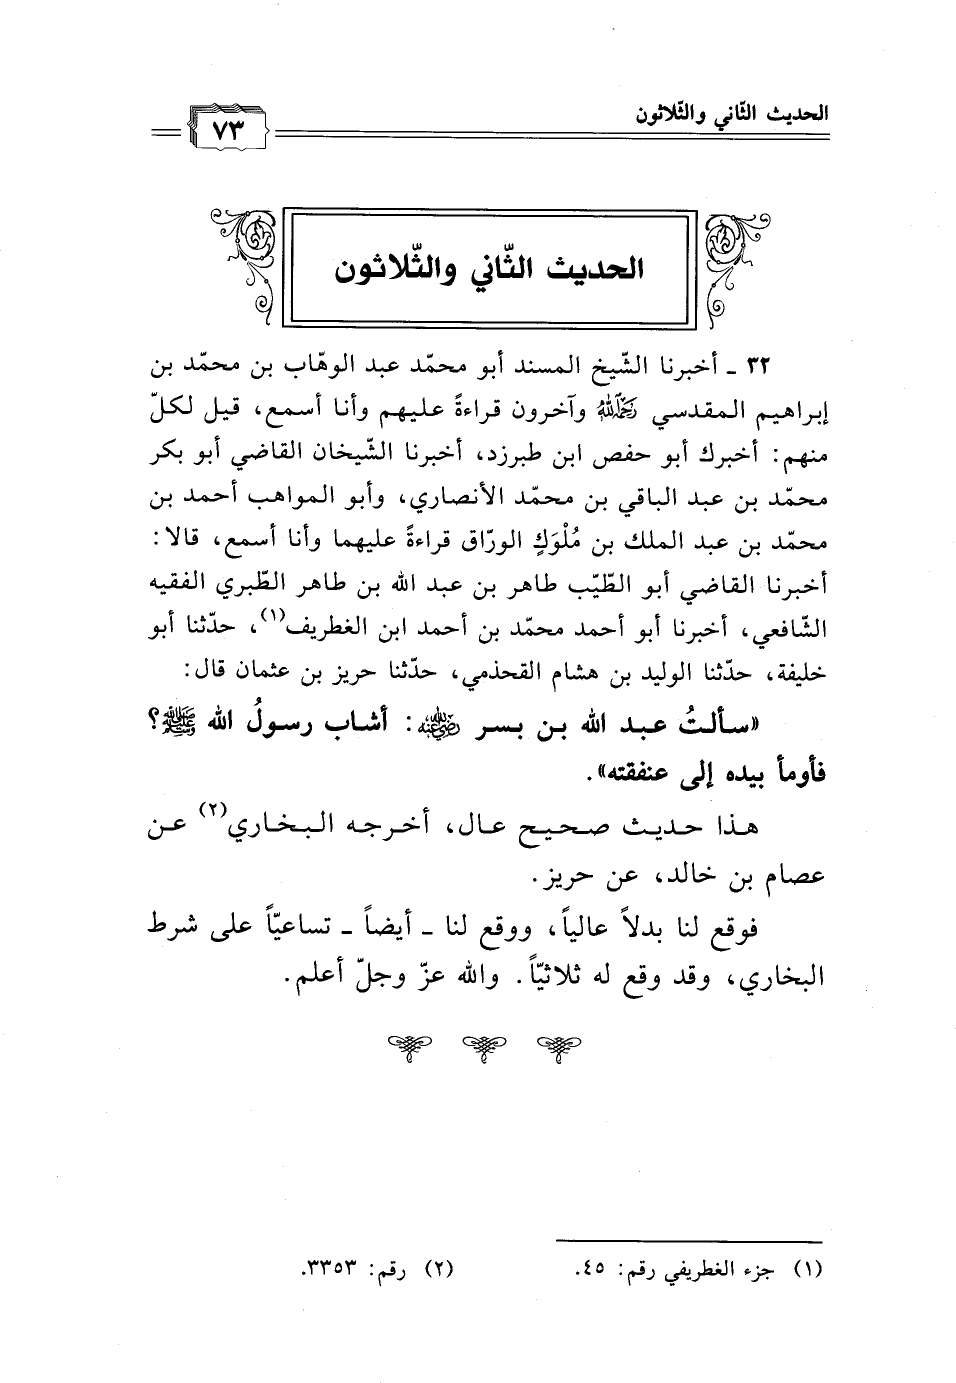 الحديث الثّاني والثّلاثون
٧٣
الحديث الثّاني والثّلاثون
٣٢ ـ أخبرنا الشّيخ المسند أبو محمّد عبد الوهّاب بن محمّد بن
إبراهيم المقدسي رَحِمَهُ اللهُ وآخرون قراءةً عليهم وأنا أسمع، قيل لكلّ
منهم: أخبرك أبو حفص ابن طبرزد، أخبرنا الشّيخان القاضي أبو بكر
محمّد بن عبد الباقي بن محمّد الأنصاري، وأبو المواهب أحمد بن
محمّد بن عبد الملك بن مُلْوَكٍ الورّاق قراءةً عليهما وأنا أسمع، قالا:
أخبرنا القاضي أبو الطّيّب طاهر بن عبد الله بن طاهر الطّبري الفقيه
الشّافعي، أخبرنا أبو أحمد محمّد بن أحمد ابن الغطريف(١)، حدّثنا أبو
خليفة، حدّثنا الوليد بن هشام القحذمي، حدّثنا حريز بن عثمان قال:
«سألتُ عبد الله بن بسر رضي الله عنه: أشاب رسولُ الله ﷺ؟
فأومأ بيده إلى عنفقته».
هذا حديث صحيح عال، أخرجه البخاري(٢) عن
عصام بن خالد، عن حريز.
فوقع لنا بدلاً عالياً، ووقع لنا ـ أيضاً ـ تساعيّاً على شرط
البخاري، وقد وقع له ثلاثيّاً. والله عزّ وجلّ أعلم.
(١) جزء الغطريفي رقم: ٤٥. (٢) رقم: ٣٣٥٣.